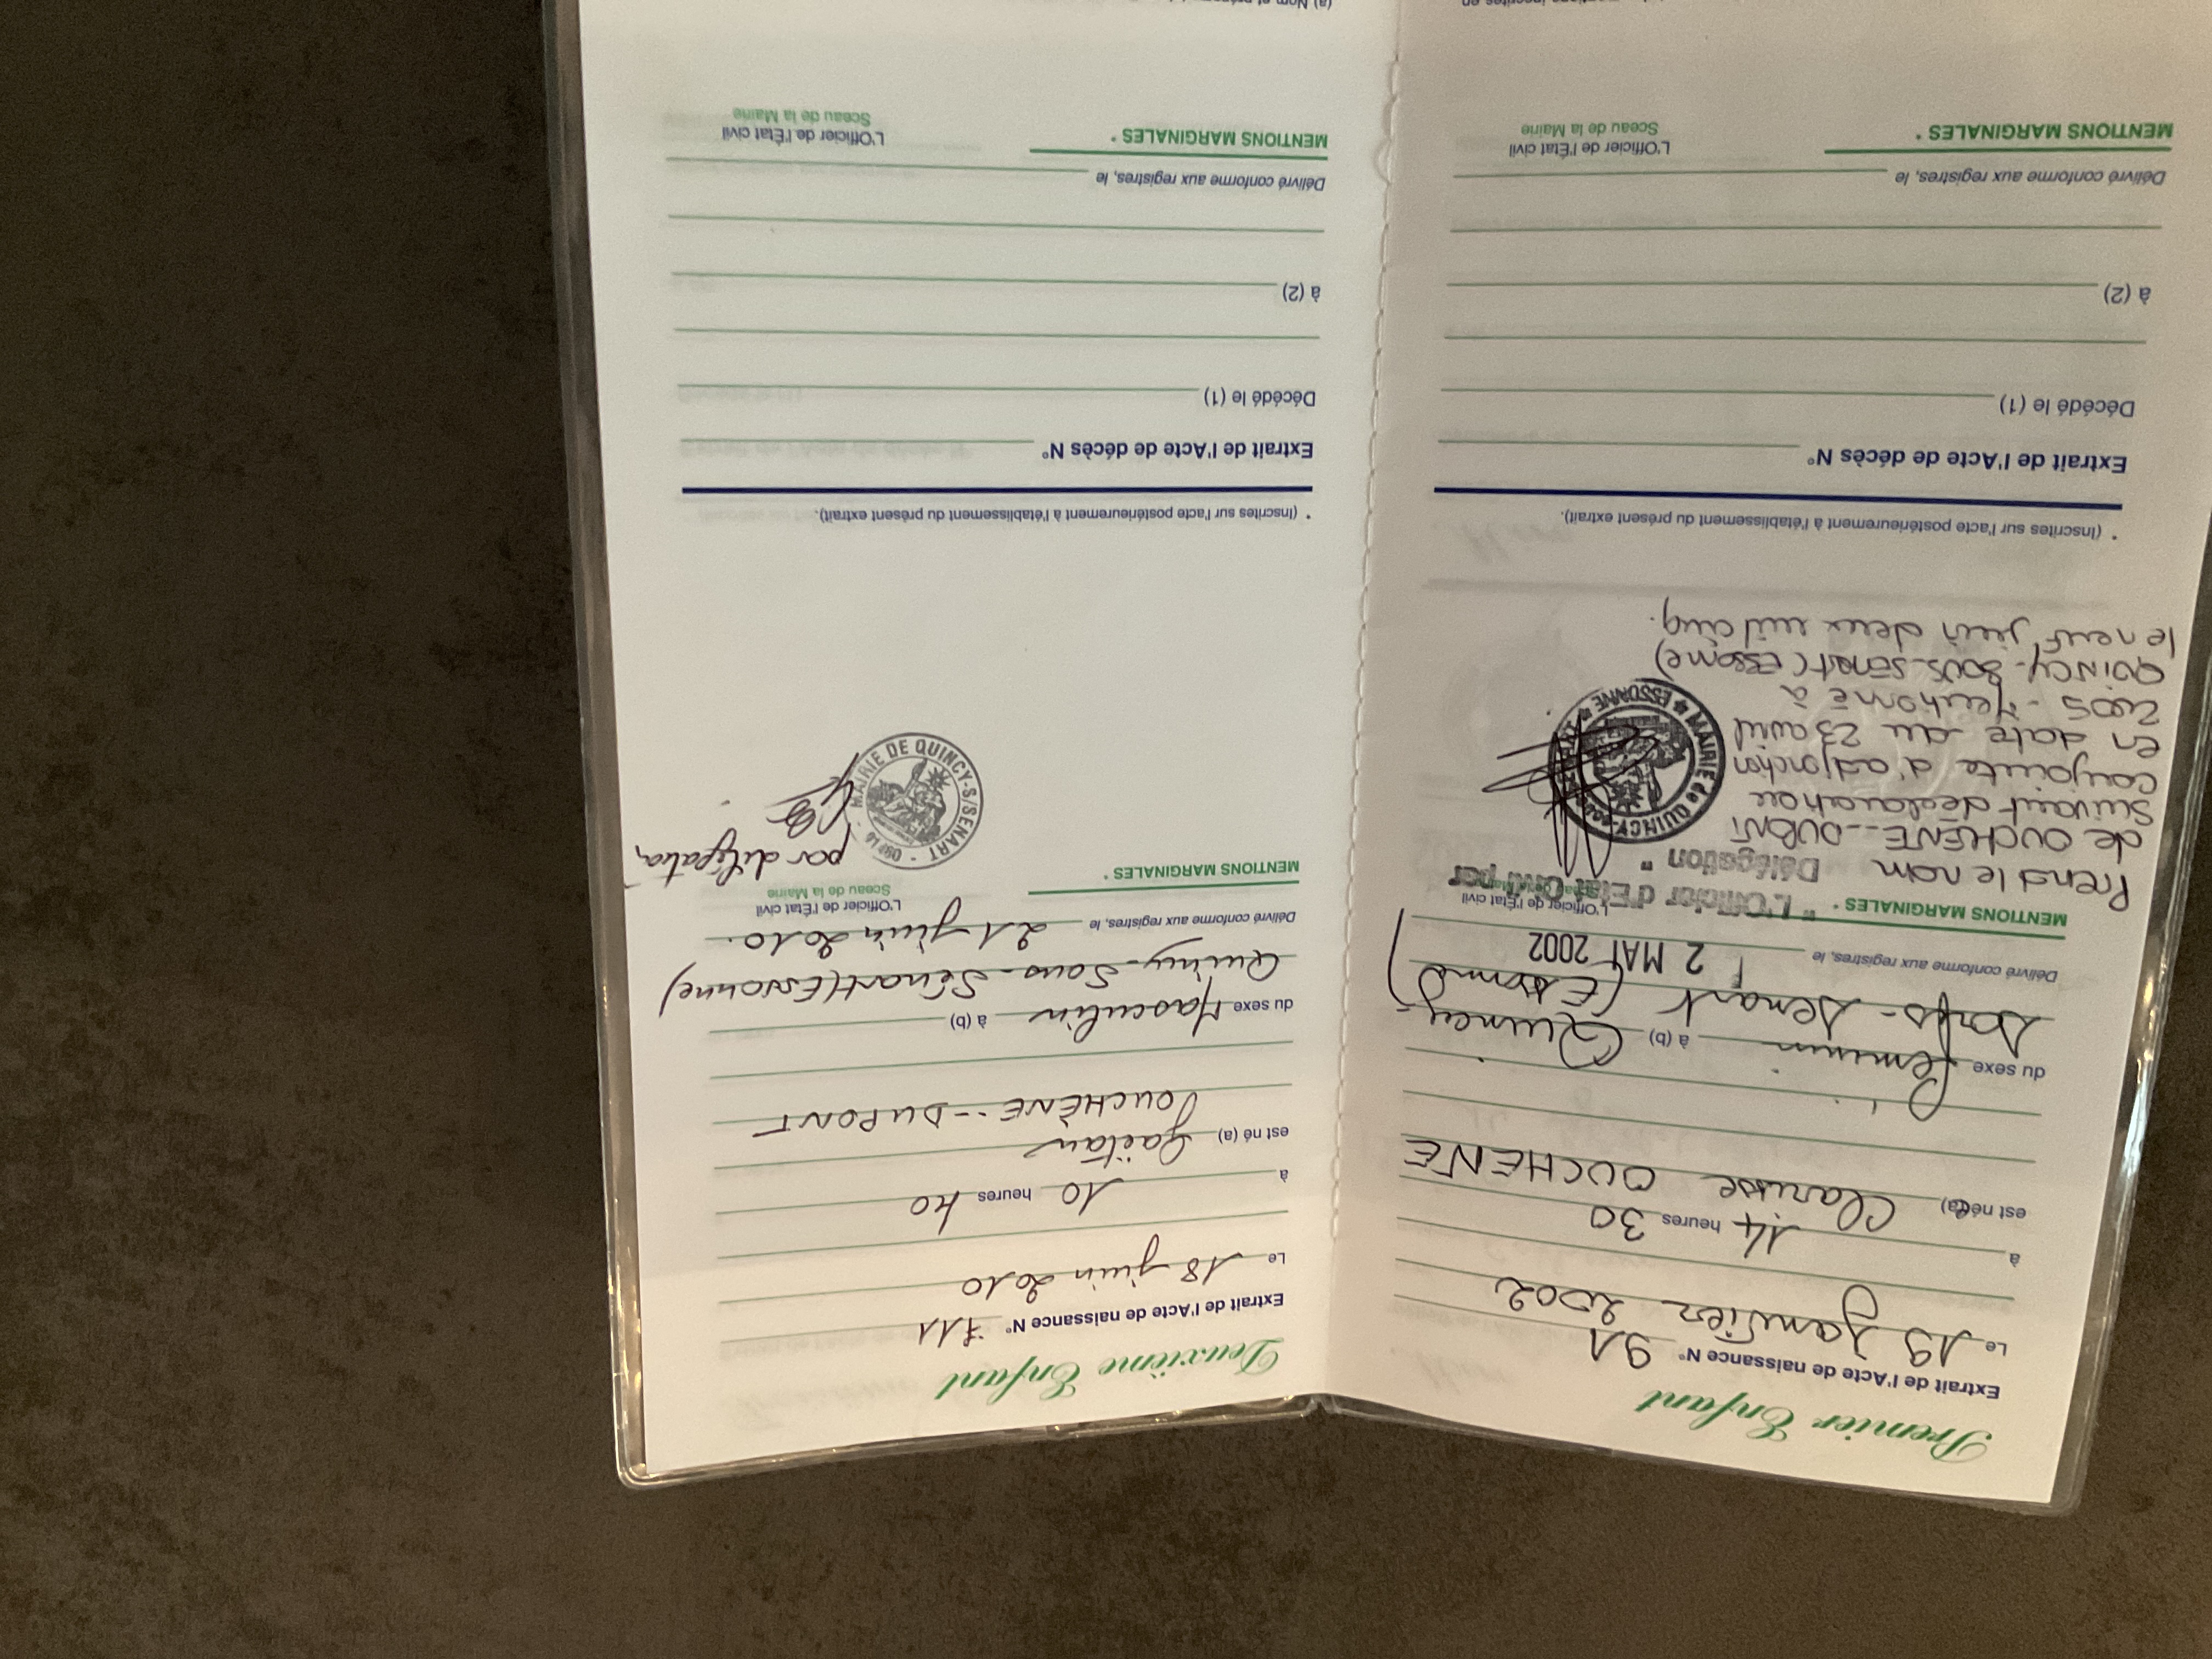 Premier Enfant
Extrait de l'Acte de naissance N° 91
Le 19 Janvier 2002
à 14 heures 30
est né(e) (a) Clarisse OUCHENE
du sexe féminin à (b) Quincy-
sous-Sénart (Essonne)
Délivré conforme aux registres, le 2 MAI 2002
MENTIONS MARGINALES *
L'Officier de l'État civil
Sceau de la Mairie
"L'Officier d'Etat Civil par
Délégation"
Prend le nom
de OUCHÈNE--DUPONT
suivant déclaration
conjointe d'adjonction
en date du 23 avril
2005 - Mentionné à
QUINCY-SOUS-SÉNART (Essonne)
le neuf juin deux mil cinq.
MAIRIE de QUINCY-sous-SÉNART
★ ESSONNE ★
* (Inscrites sur l'acte postérieurement à l'établissement du présent extrait).
Extrait de l'Acte de décès N°
Décédé le (1)
à (2)
Délivré conforme aux registres, le
MENTIONS MARGINALES *
L'Officier de l'État civil
Sceau de la Mairie
Deuxième Enfant
Extrait de l'Acte de naissance N° 711
Le 18 juin 2010
à 10 heures 40
est né (a) Gaëtan
OUCHÈNE--DUPONT
du sexe Masculin à (b)
Quincy-Sous-Sénart (Essonne)
Délivré conforme aux registres, le 21 juin 2010.
MENTIONS MARGINALES *
L'Officier de l'État civil
Sceau de la Mairie
par délégation,
MAIRIE DE QUINCY-S/SENART
* (Inscrites sur l'acte postérieurement à l'établissement du présent extrait).
Extrait de l'Acte de décès N°
Décédé le (1)
à (2)
Délivré conforme aux registres, le
MENTIONS MARGINALES *
L'Officier de l'État civil
Sceau de la Mairie